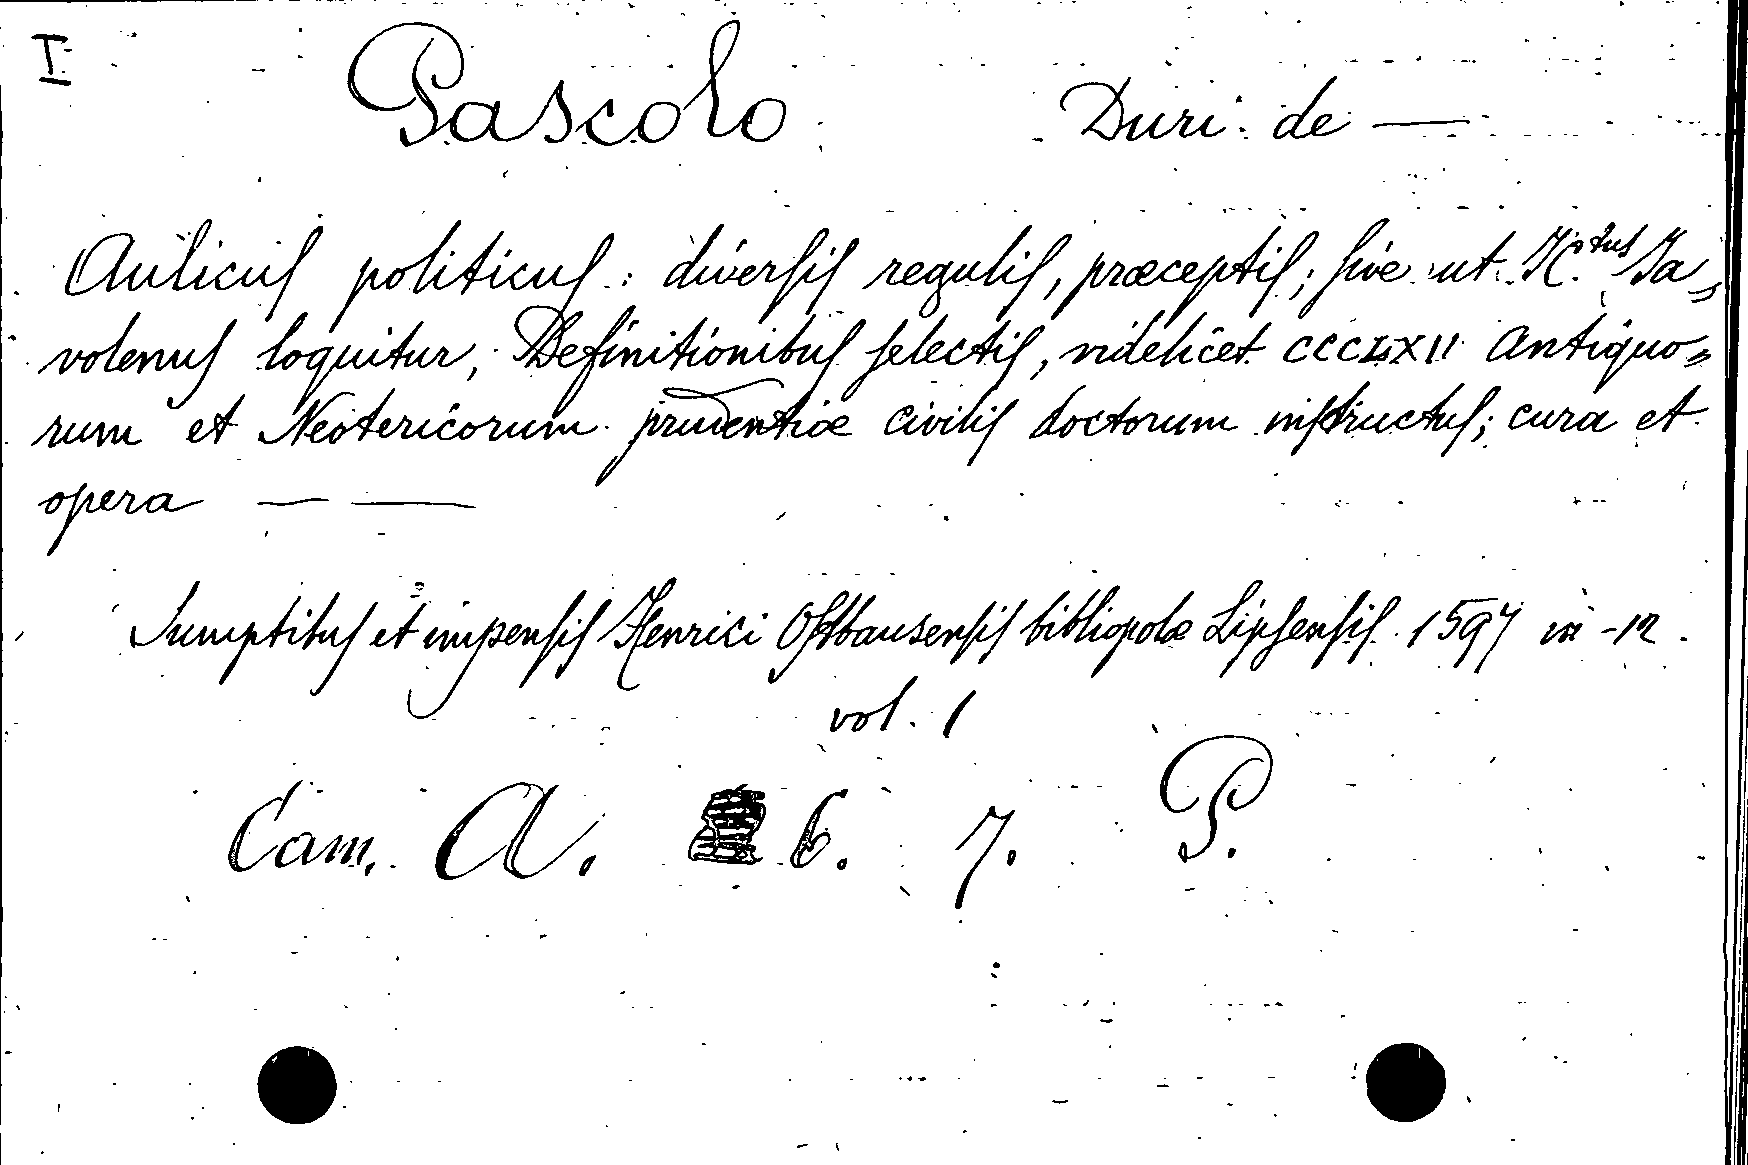 I
Pascolo Duri de —
Aulicus politicus: diversis regulis, præceptis; sive ut IC.tus Ja„
volenus loquitur, Definitionibus selectis, videlicet CCCLXII Antiquo„
rum et Neotericorum prudentiæ civilis doctorum instructus; cura et
opera — —
Sumptibus et impensis Henrici Osthausensis bibliopolæ Lipsensis 1597 in-12.
vol. 1
Cam. A. 6. 7. P.